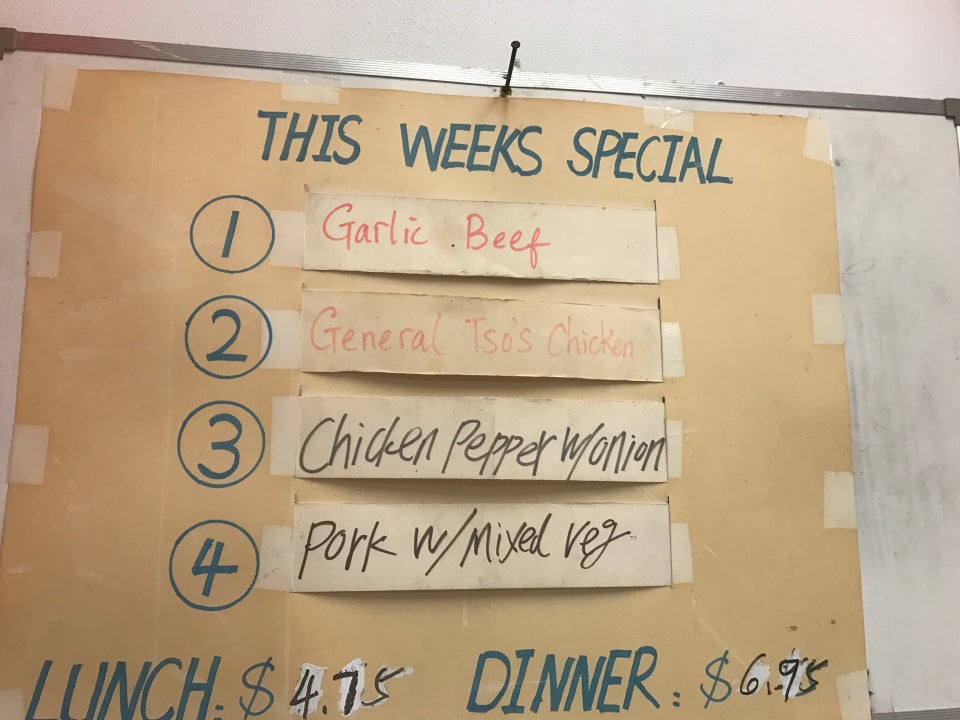 THIS WEEKS SPECIAL
1 Garlic Beef
2 General Tso's Chicken
3 Chicken Pepper w/onion
4 Pork w/Mixed veg
LUNCH: $4.75 DINNER: $6.95